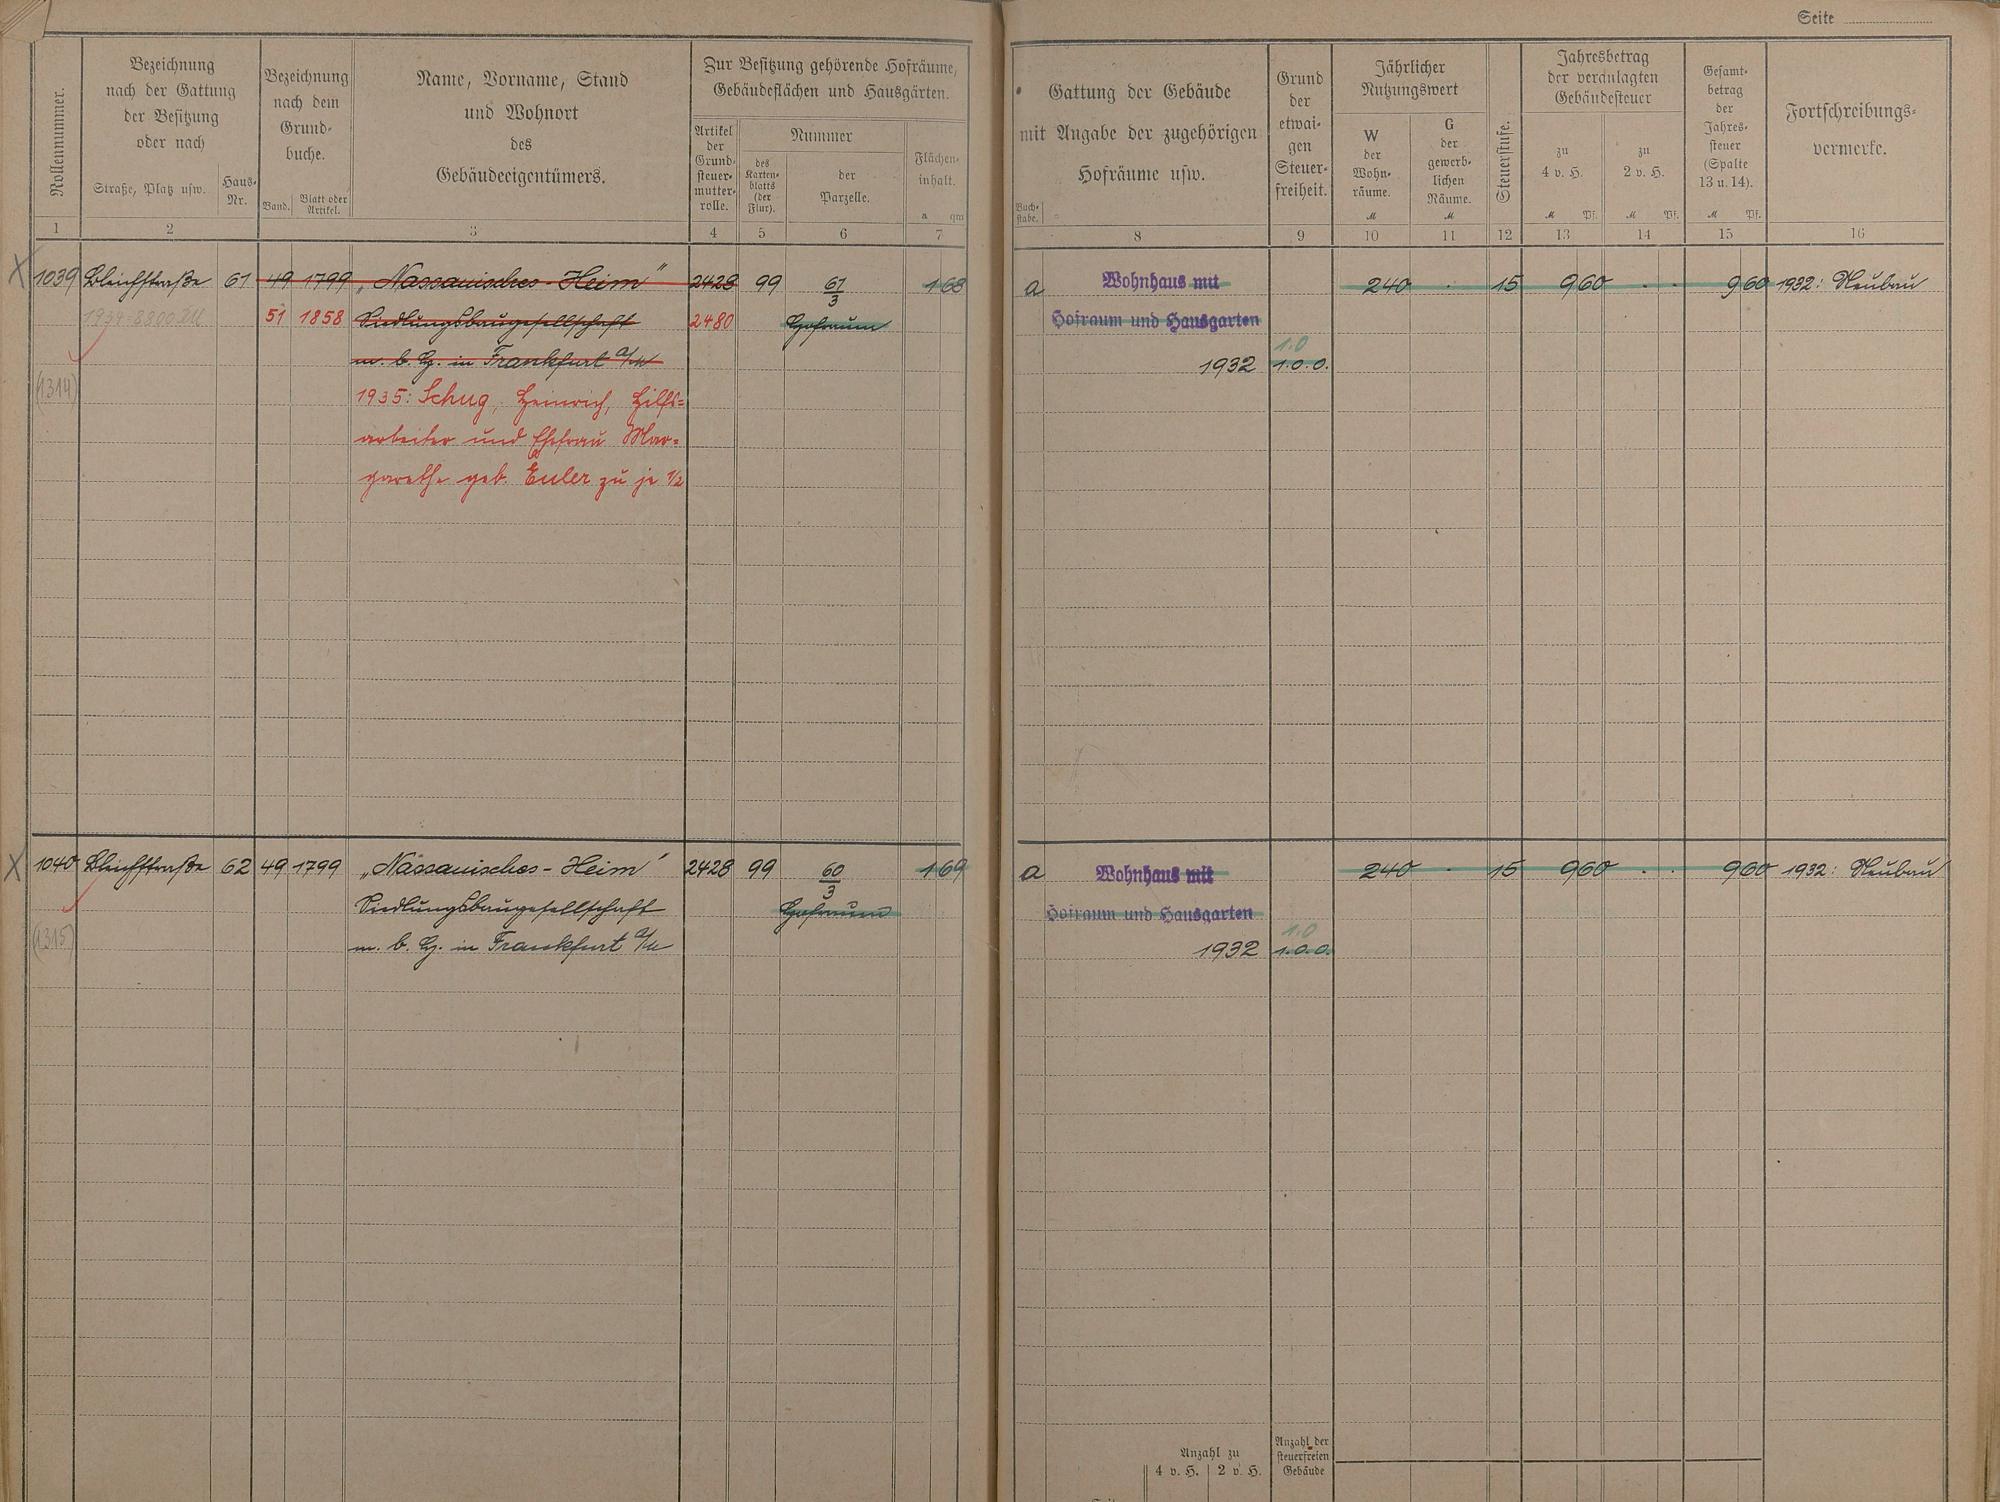 Seite
Rollennummer.
Bezeichnung
nach der Gattung
der Besitzung
oder nach
Straße, Platz usw.
Haus-
Nr.
Bezeichnung
nach dem
Grund-
buche.
Band.
Blatt oder
Artikel.
Name, Vorname, Stand
und Wohnort
des
Gebäudeeigentümers.
Zur Besitzung gehörende Hofräume,
Gebäudeflächen und Hausgärten.
Artikel
der
Grund-
steuer-
mutter-
rolle.
Nummer
des
Karten-
blatts
(der
Flur).
der
Parzelle.
Flächen-
inhalt.
a qm
Gattung der Gebäude
mit Angabe der zugehörigen
Hofräume usw.
Buch-
stabe.
Grund
der
etwai-
gen
Steuer-
freiheit.
Jährlicher
Nutzungswert
W
der
Wohn-
räume.
M
G
der
gewerb-
lichen
Räume.
M
Steuerstufe.
Jahresbetrag
der veranlagten
Gebäudesteuer
zu
4 v. H.
M Pf.
zu
2 v. H.
M Pf.
Gesamt-
betrag
der
Jahres-
steuer
(Spalte
13 u. 14).
M Pf.
Fortschreibungs-
vermerke.
1 2 3 4 5 6 7 8 9 10 11 12 13 14 15 16
1039 Bleichstraße 61 49 1799 „Nassauisches-Heim" 2428 99 61/3 1 68 a Wohnhaus mit 240 · 15 9 60 · · 9 60 1932: Neubau
51 1858 Siedlungsbaugesellschaft 2480 Hofraum Hofraum und Hausgarten
m. b. H. in Frankfurt a/M 1932 1.0.0. 1.0
(1314)
1935: Schug, Heinrich, Hilfs=
arbeiter und Ehefrau Mar=
garethe geb. Euler zu je 1/2
1040 Bleichstraße 62 49 1799 „Nassauisches-Heim" 2428 99 60/3 1 69 a Wohnhaus mit 240 · 15 9 60 · · 9 60 1932: Neubau
Siedlungsbaugesellschaft Hofraum Hofraum und Hausgarten
(1315) m. b. H. in Frankfurt a/M 1932 1.0.0. 1.0
Anzahl zu
4 v. H. 2 v. H.
Anzahl der
steuerfreien
Gebäude